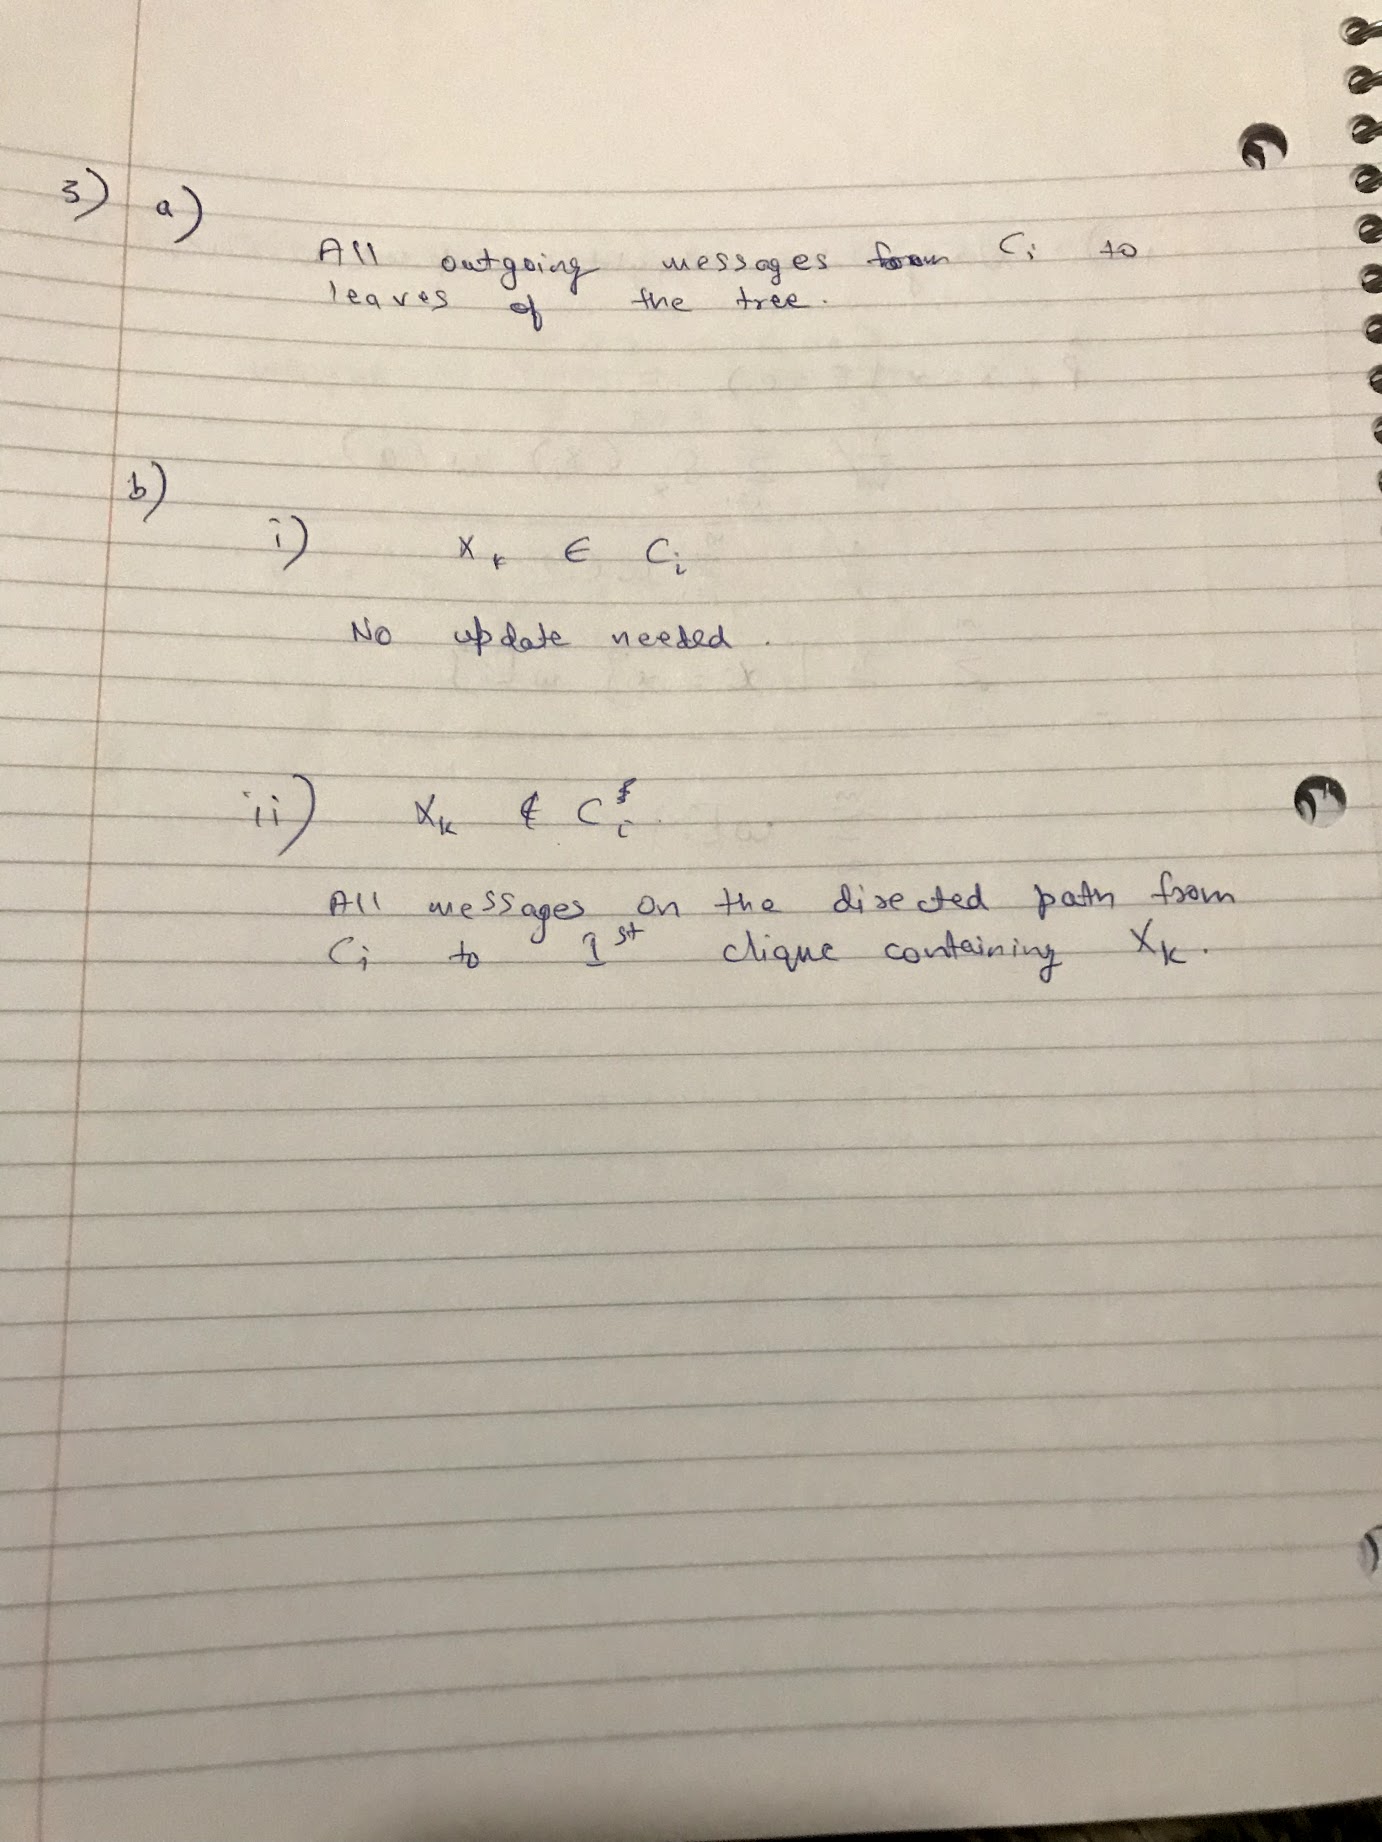 3) a)
All outgoing messages from Ci to
leaves of the tree.
b)
i) Xk ∈ Ci
No update needed.
ii) Xk ∉ Ci.
All messages on the directed path from
Ci to 1st clique containing Xk.